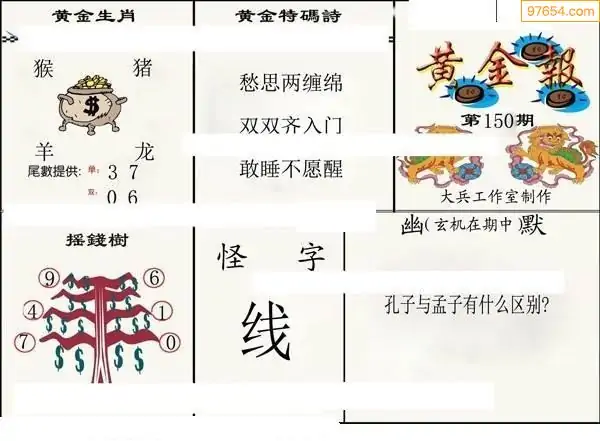 97654.com
黄金生肖
猴 猪
羊 龙
尾數提供: 单: 3 7
双: 0 6
黄金特碼詩
愁思两缠绵
双双齐入门
敢睡不愿醒
黄金報
第150期
大兵工作室制作
摇錢樹
9 6
4 1
7 0
怪字
线
幽(玄机在期中)默
孔子与孟子有什么区别?